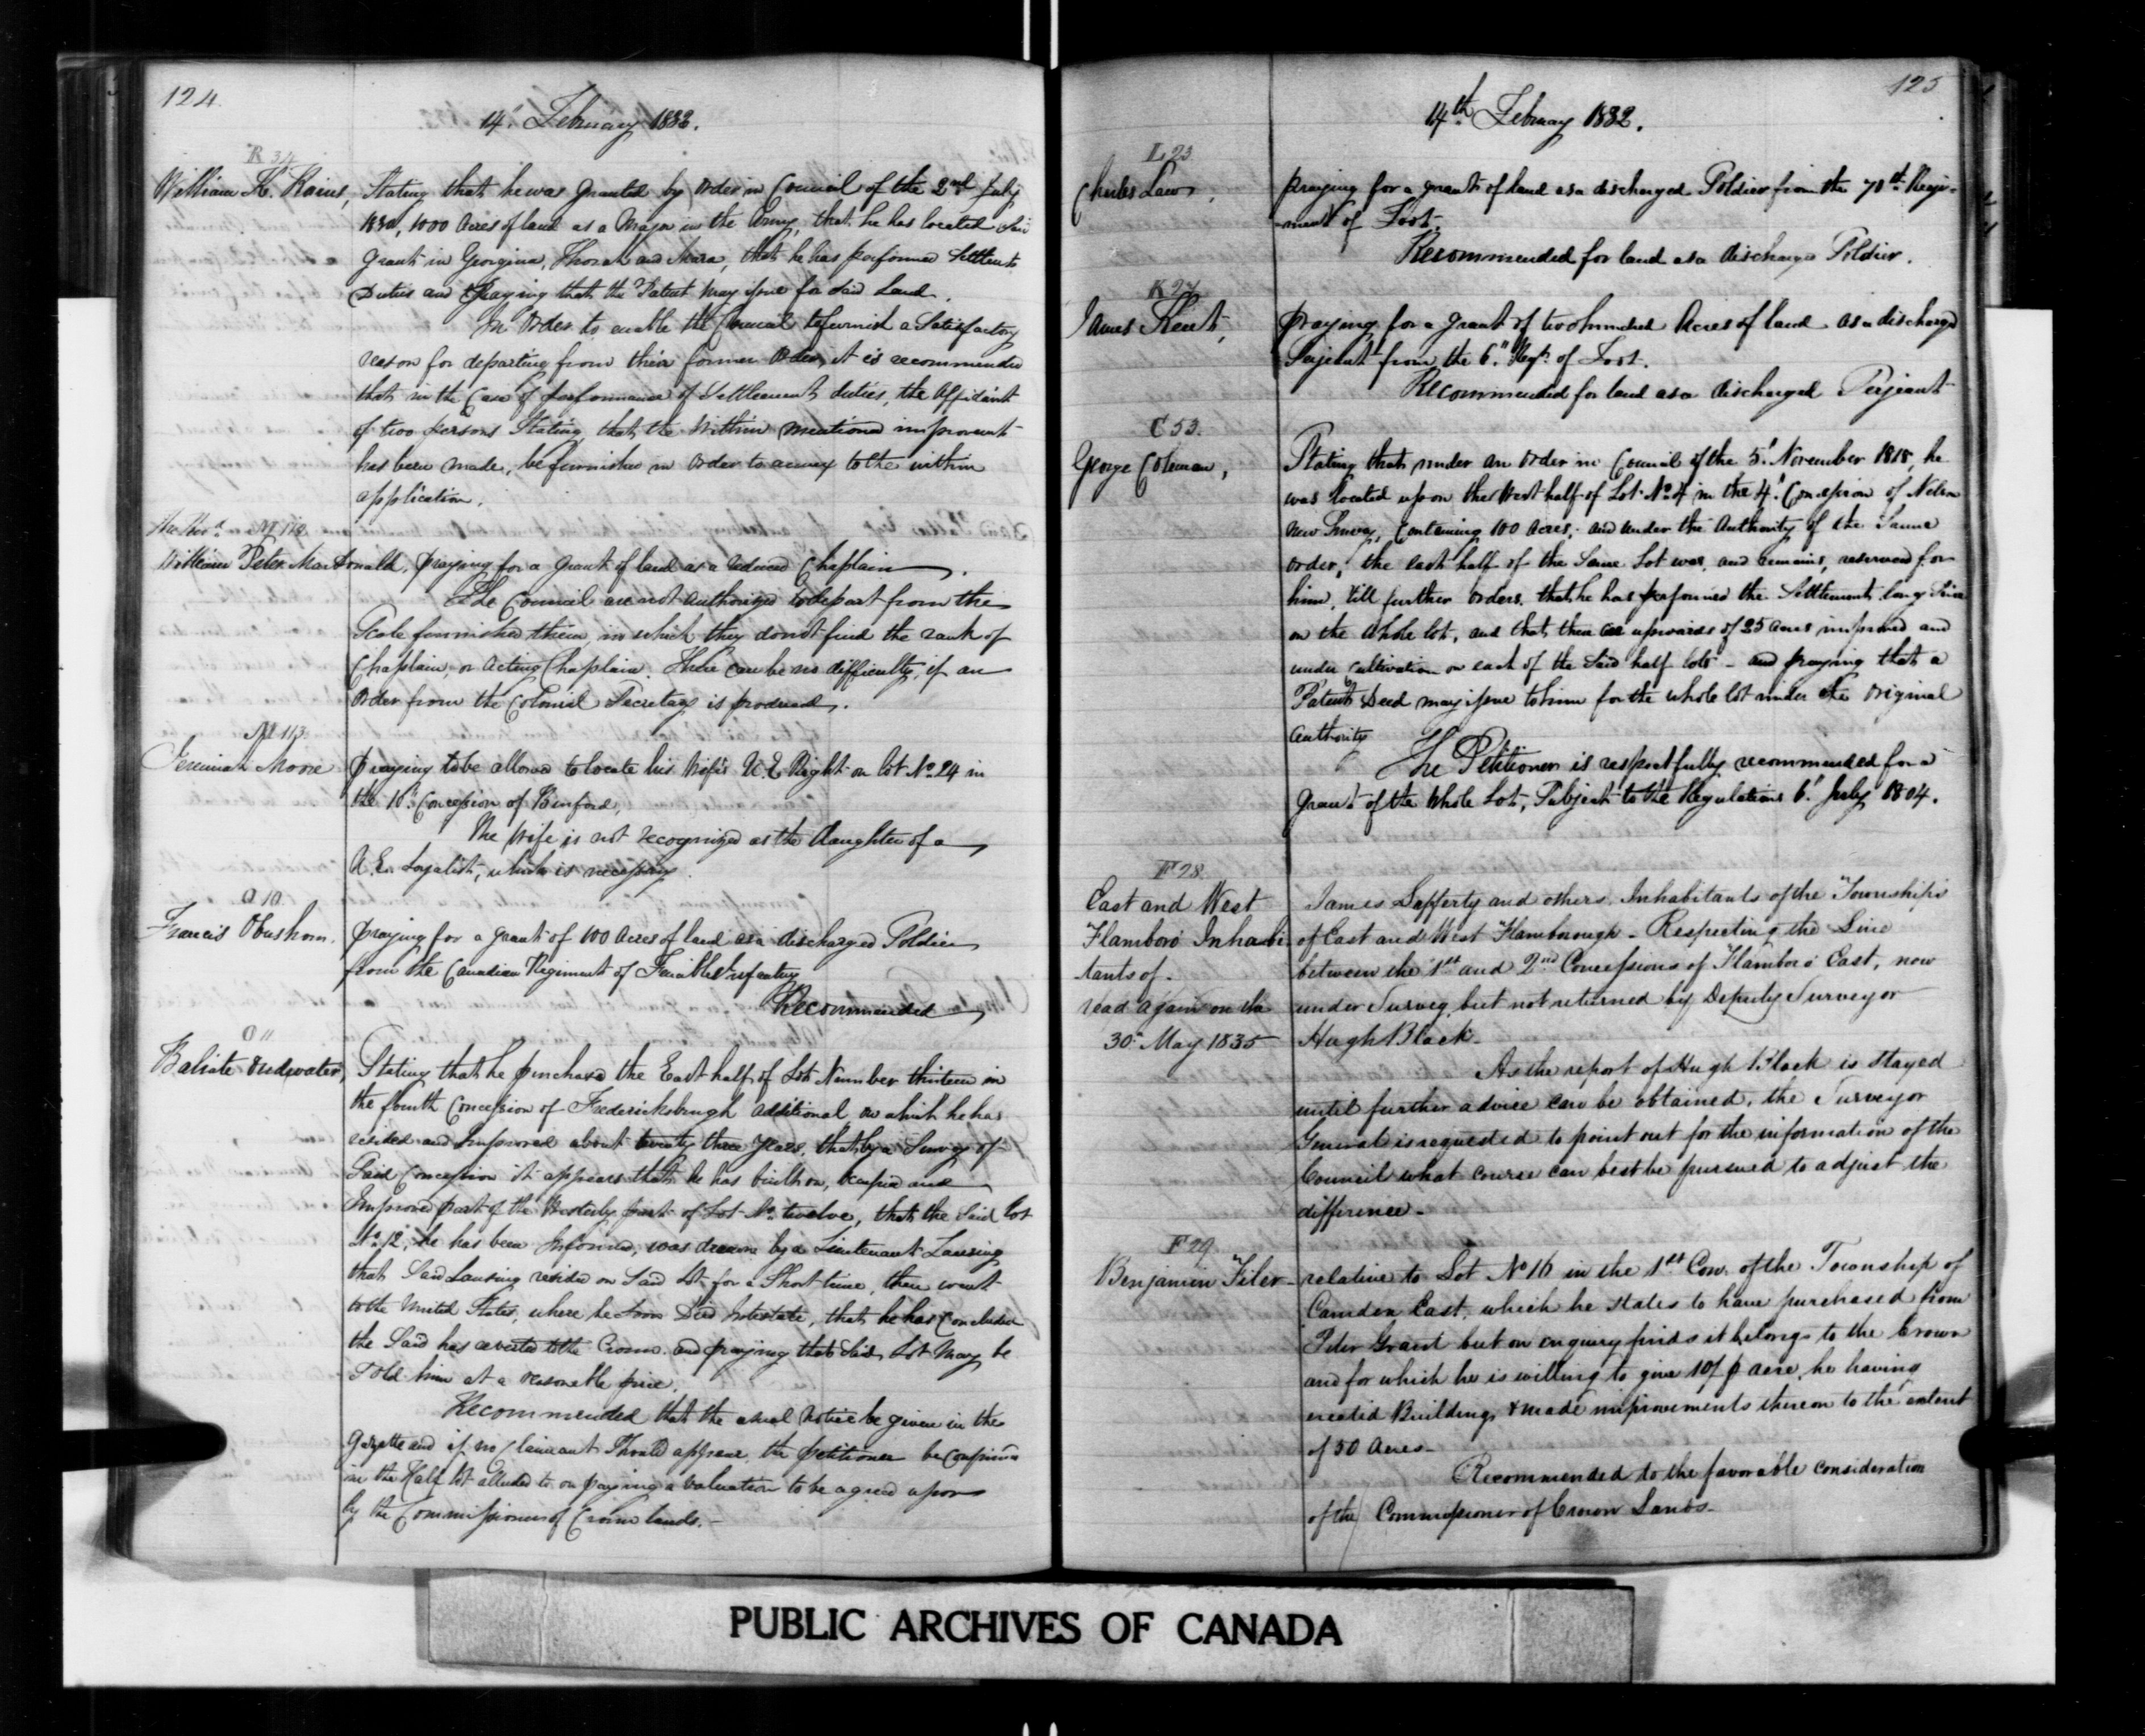 124.
14th February 1832.
R 34
William K. Rains, Stating that he was granted by Order in Council of the 2nd July
1830, 1000 Acres of land as a Major in the Army, that he has located said
Grant in Georgina, Thorah and Mara, that he has performed Settlement
Duties and Praying that the Patent may issue for said Land.
In Order to enable the Council to furnish a Satisfactory
reason for departing from their former Order, it is recommended
that in the Case of performance of Settlement duties, the Affidavit
of two persons Stating that the Within mentioned improvement
has been made, be furnished in Order to annex to the within
application.
William Peter MacDonald, praying for a grant of land as a reduced Chaplain.
The Council are not authorized to depart from the
Scale furnished them, in which they do not find the rank of
Chaplain, or Acting Chaplain. There can be no difficulty, if an
Order from the Colonial Secretary is produced.
M 113
Jeremiah Moore Praying to be allowed to locate his Wife's U.E. Right on lot No. 24 in
the 10th Concession of Binford,
The Wife is not recognized as the Daughter of a
U.E. Loyalist, which is necessary.
O 10.
Francis Obushom. praying for a grant of 100 Acres of land as a discharged Soldier
from the Canadian Regiment of Fencible Infantry
Recommended
O 11
Stating that he purchased the East half of Lot Number thirteen in
the fourth Concession of Fredericksburgh Additional on which he has
resided and Improved about twenty three years, that by a Survey of
Said Concession it appears that he has built on, Occupied and
Improved part of the Westerly part of Lot No. twelve, that the Said Lot
No. 12, he has been Informed, was drawn by a Lieutenant Lansing
that Said Lansing resided on Said Lot for a Short time, then went
to the United States, where he soon Died Intestate, that he has Concluded
the Land has reverted to the Crown and praying that Said Lot may be
Sold him at a reasonable price.
Recommended that the usual Notice be given in the
Gazette and if no Claimant Should appear, the petitioner be Confirmed
in the Half lot alluded to on paying a valuation to be agreed upon
by the Commissioner of Crown lands.
125
14th February 1832.
L 23.
Charles Law, praying for a grant of land as a discharged Soldier from the 70th Regi-
-ment of Foot.
Recommended for land as a discharged Soldier.
K 27
James Kent, praying for a grant of two hundred Acres of land as a discharged
Serjeant from the 6th Regt. of Foot.
Recommended for land as a discharged Serjeant
C 53.
George Coleman, Stating that under an Order in Council of the 5th November 1818, he
was located upon the West half of Lot No. 4 in the 4th Concession of Nelson
New Survey, Containing 100 Acres, and under the Authority of the Same
Order, the East half of the Same Lot was, and remains, reserved for
him, till further Orders. that he has performed the Settlement long Since
on the whole lot, and that there are upwards of 25 acres improved and
under Cultivation on each of the Said half lots - and praying that a
Patent Deed may issue to him for the whole lot under the Original
Authority
The Petitioner is respectfully recommended for a
Grant of the Whole Lot, Subject to the Regulations 6th July 1804.
F 28.
East and West James Lafferty and others Inhabitants of the Townships
Flamboro' Inhabi of East and West Flamborough - Respecting the Line
tants of. between the 1st and 2nd Concessions of Flamboro' East, now
read again on the under Survey but not returned by Deputy Surveyor
30th May 1835 Hugh Black
As the report of Hugh Black is stayed
until further advice can be obtained, the Surveyor
General is requested to point out for the information of the
Council what course can best be pursued to adjust the
difference -
F 29
Benjamin Files - relative to Lot No 16 in the 1st Con. of the Township of
Camden East, which he states to have purchased from
Peter Grant but on enquiry finds it belongs to the Crown
and for which he is willing to give 10/ p acre, he having
erected Buildings & made improvements thereon to the extent
of 50 Acres -
Recommended to the favorable consideration
of the Commissioner of Crown Lands -
PUBLIC ARCHIVES OF CANADA